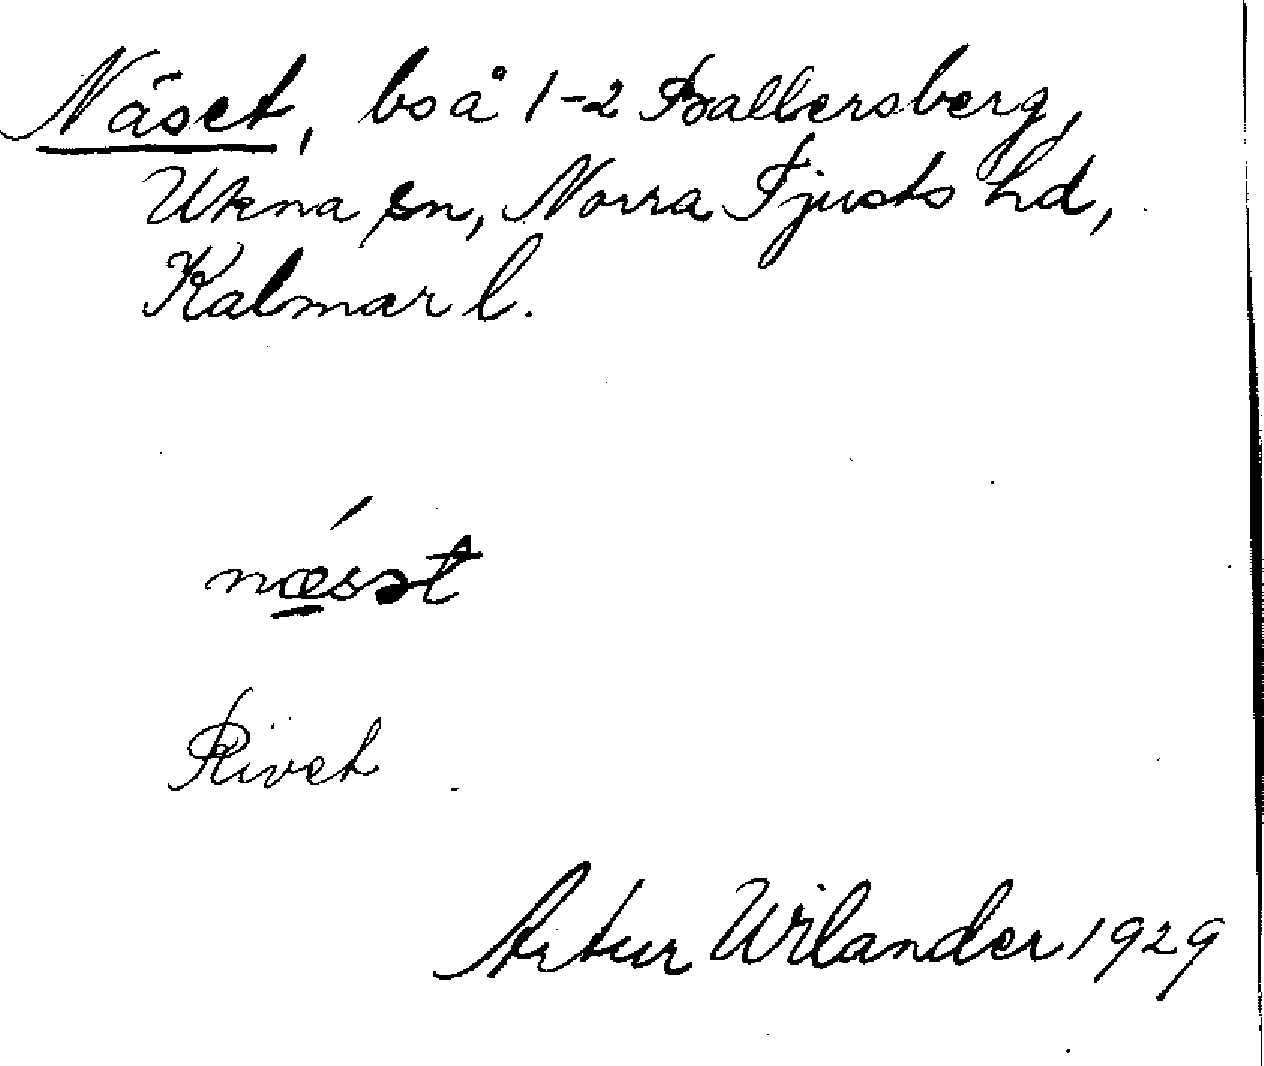 Näset, bs å 1-2 Ballersberg,
Ukna sn, Norra Tjusts hd,
Kalmar l.
næsət
Rivet
Artur Wilander 1929